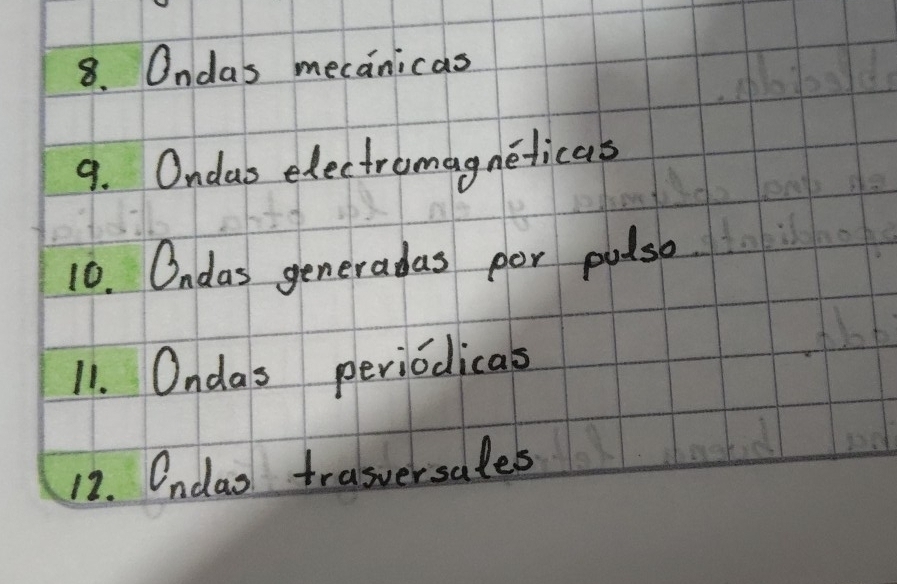 8. Ondas mecánicas
9. Ondas electromagnéticas
10. Ondas generadas por pulso
11. Ondas periódicas
12. Ondas trasversales